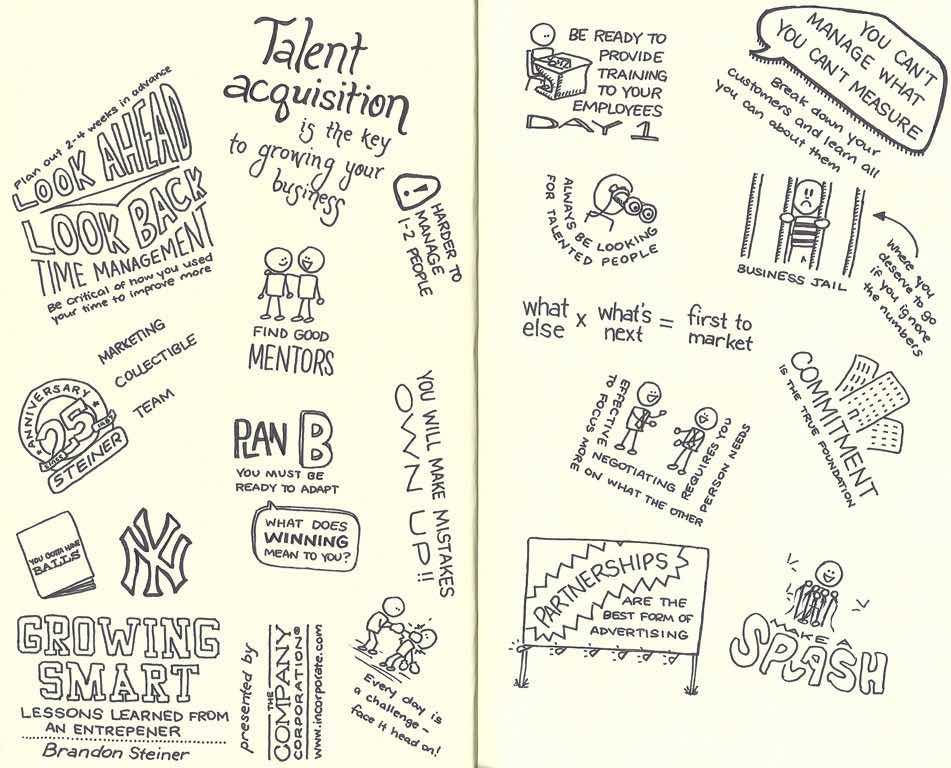 Talent
acquisition
is the key
to growing your
business
Plan out 2-4 weeks in advance
LOOK AHEAD
LOOK BACK
TIME MANAGEMENT
Be critical of how you used
your time to improve more
!
HARDER TO
MANAGE
1-2 PEOPLE
FIND GOOD
MENTORS
MARKETING
COLLECTIBLE
TEAM
ANNIVERSARY
25
STEINER
PLAN B
YOU MUST BE
READY TO ADAPT
YOU WILL MAKE MISTAKES
OWN UP!!
WHAT DOES
WINNING
MEAN TO YOU?
YOU GOTTA HAVE
BALLS
NY
GROWING
SMART
LESSONS LEARNED FROM
AN ENTREPENER
Brandon Steiner
presented by
THE
COMPANY
CORPORATION®
www.incorporate.com
Every day is
a challenge -
face it head on!
BE READY TO
PROVIDE
TRAINING
TO YOUR
EMPLOYEES
DAY 1
YOU CAN'T
MANAGE WHAT
YOU CAN'T MEASURE
Break down your
customers and learn all
you can about them
ALWAYS BE LOOKING
FOR TALENTED PEOPLE
BUSINESS JAIL
Where you
deserve to go
if you ignore
the numbers
what else x what's next = first to market
EFFECTIVE NEGOTIATING REQUIRES YOU
TO FOCUS MORE ON WHAT THE OTHER PERSON NEEDS
COMMITMENT
IS THE TRUE FOUNDATION
PARTNERSHIPS
ARE THE
BEST FORM OF
ADVERTISING
MAKE A
SPLASH